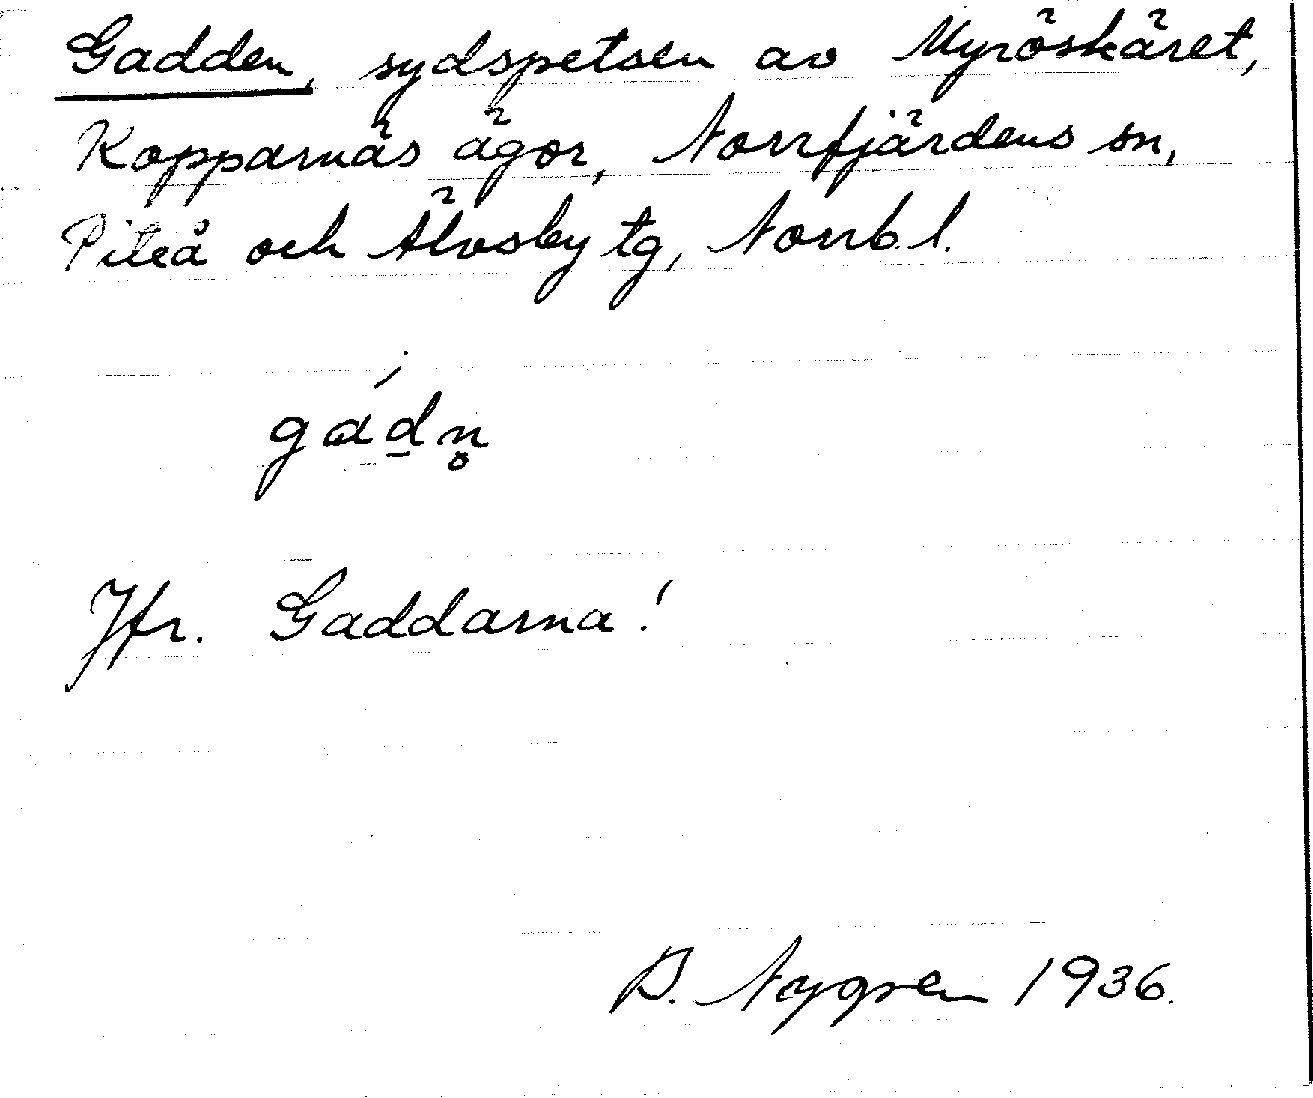 Gadden, sydspetsen av Myröskäret,
Kopparnäs ägor, Norrfjärdens sn,
Piteå och Älvsby tg, Norrb. l.
gád̲n̥
Jfr. Gaddarna!
B. Nygren 1936.